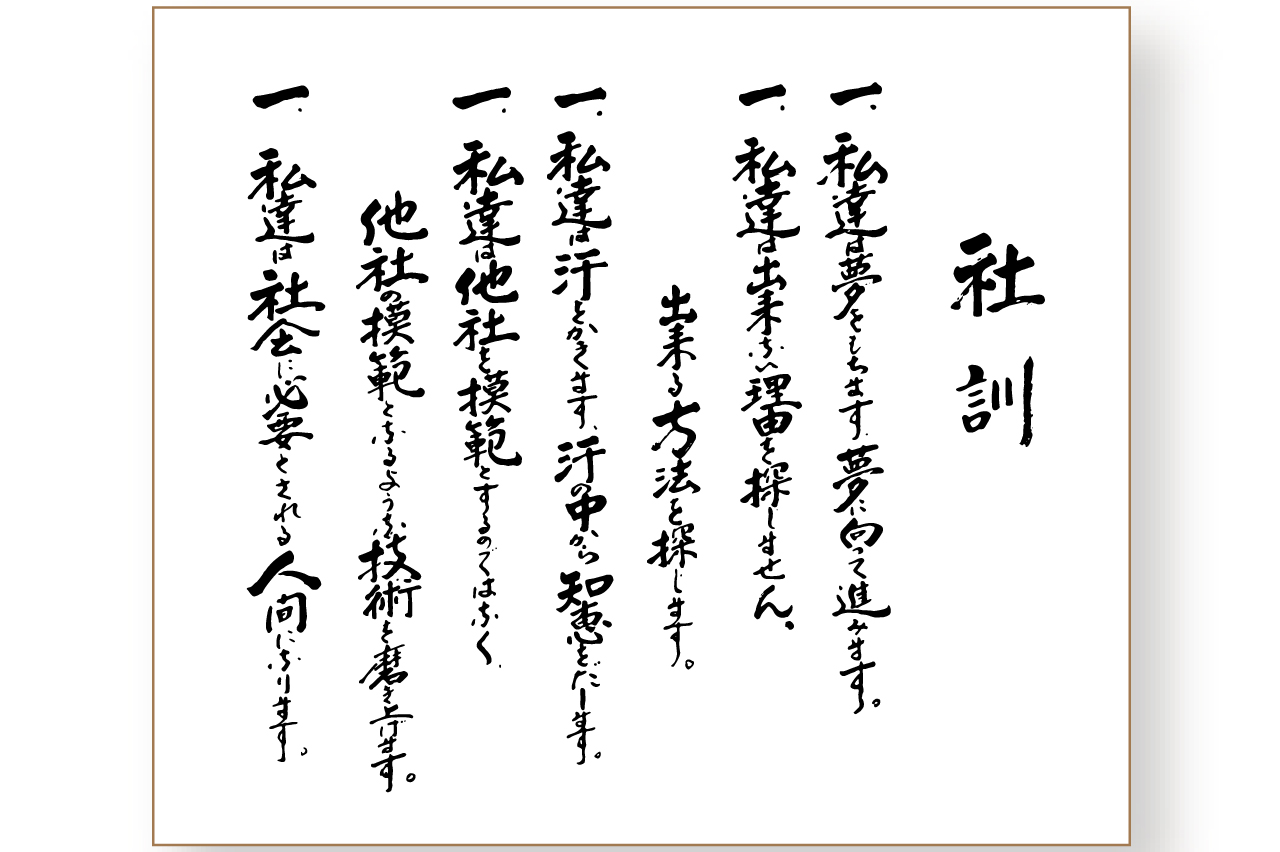 社訓
一. 私達は夢をもちます.夢に向って進みます。
一. 私達は出来ない理由を探しません。
出来る方法を探します。
一. 私達は汗をかきます、汗の中から知恵をだします。
一. 私達は他社を模範とするのではなく.
他社の模範となるような技術を磨き上げます。
一. 私達は社会に必要とされる人間になります。